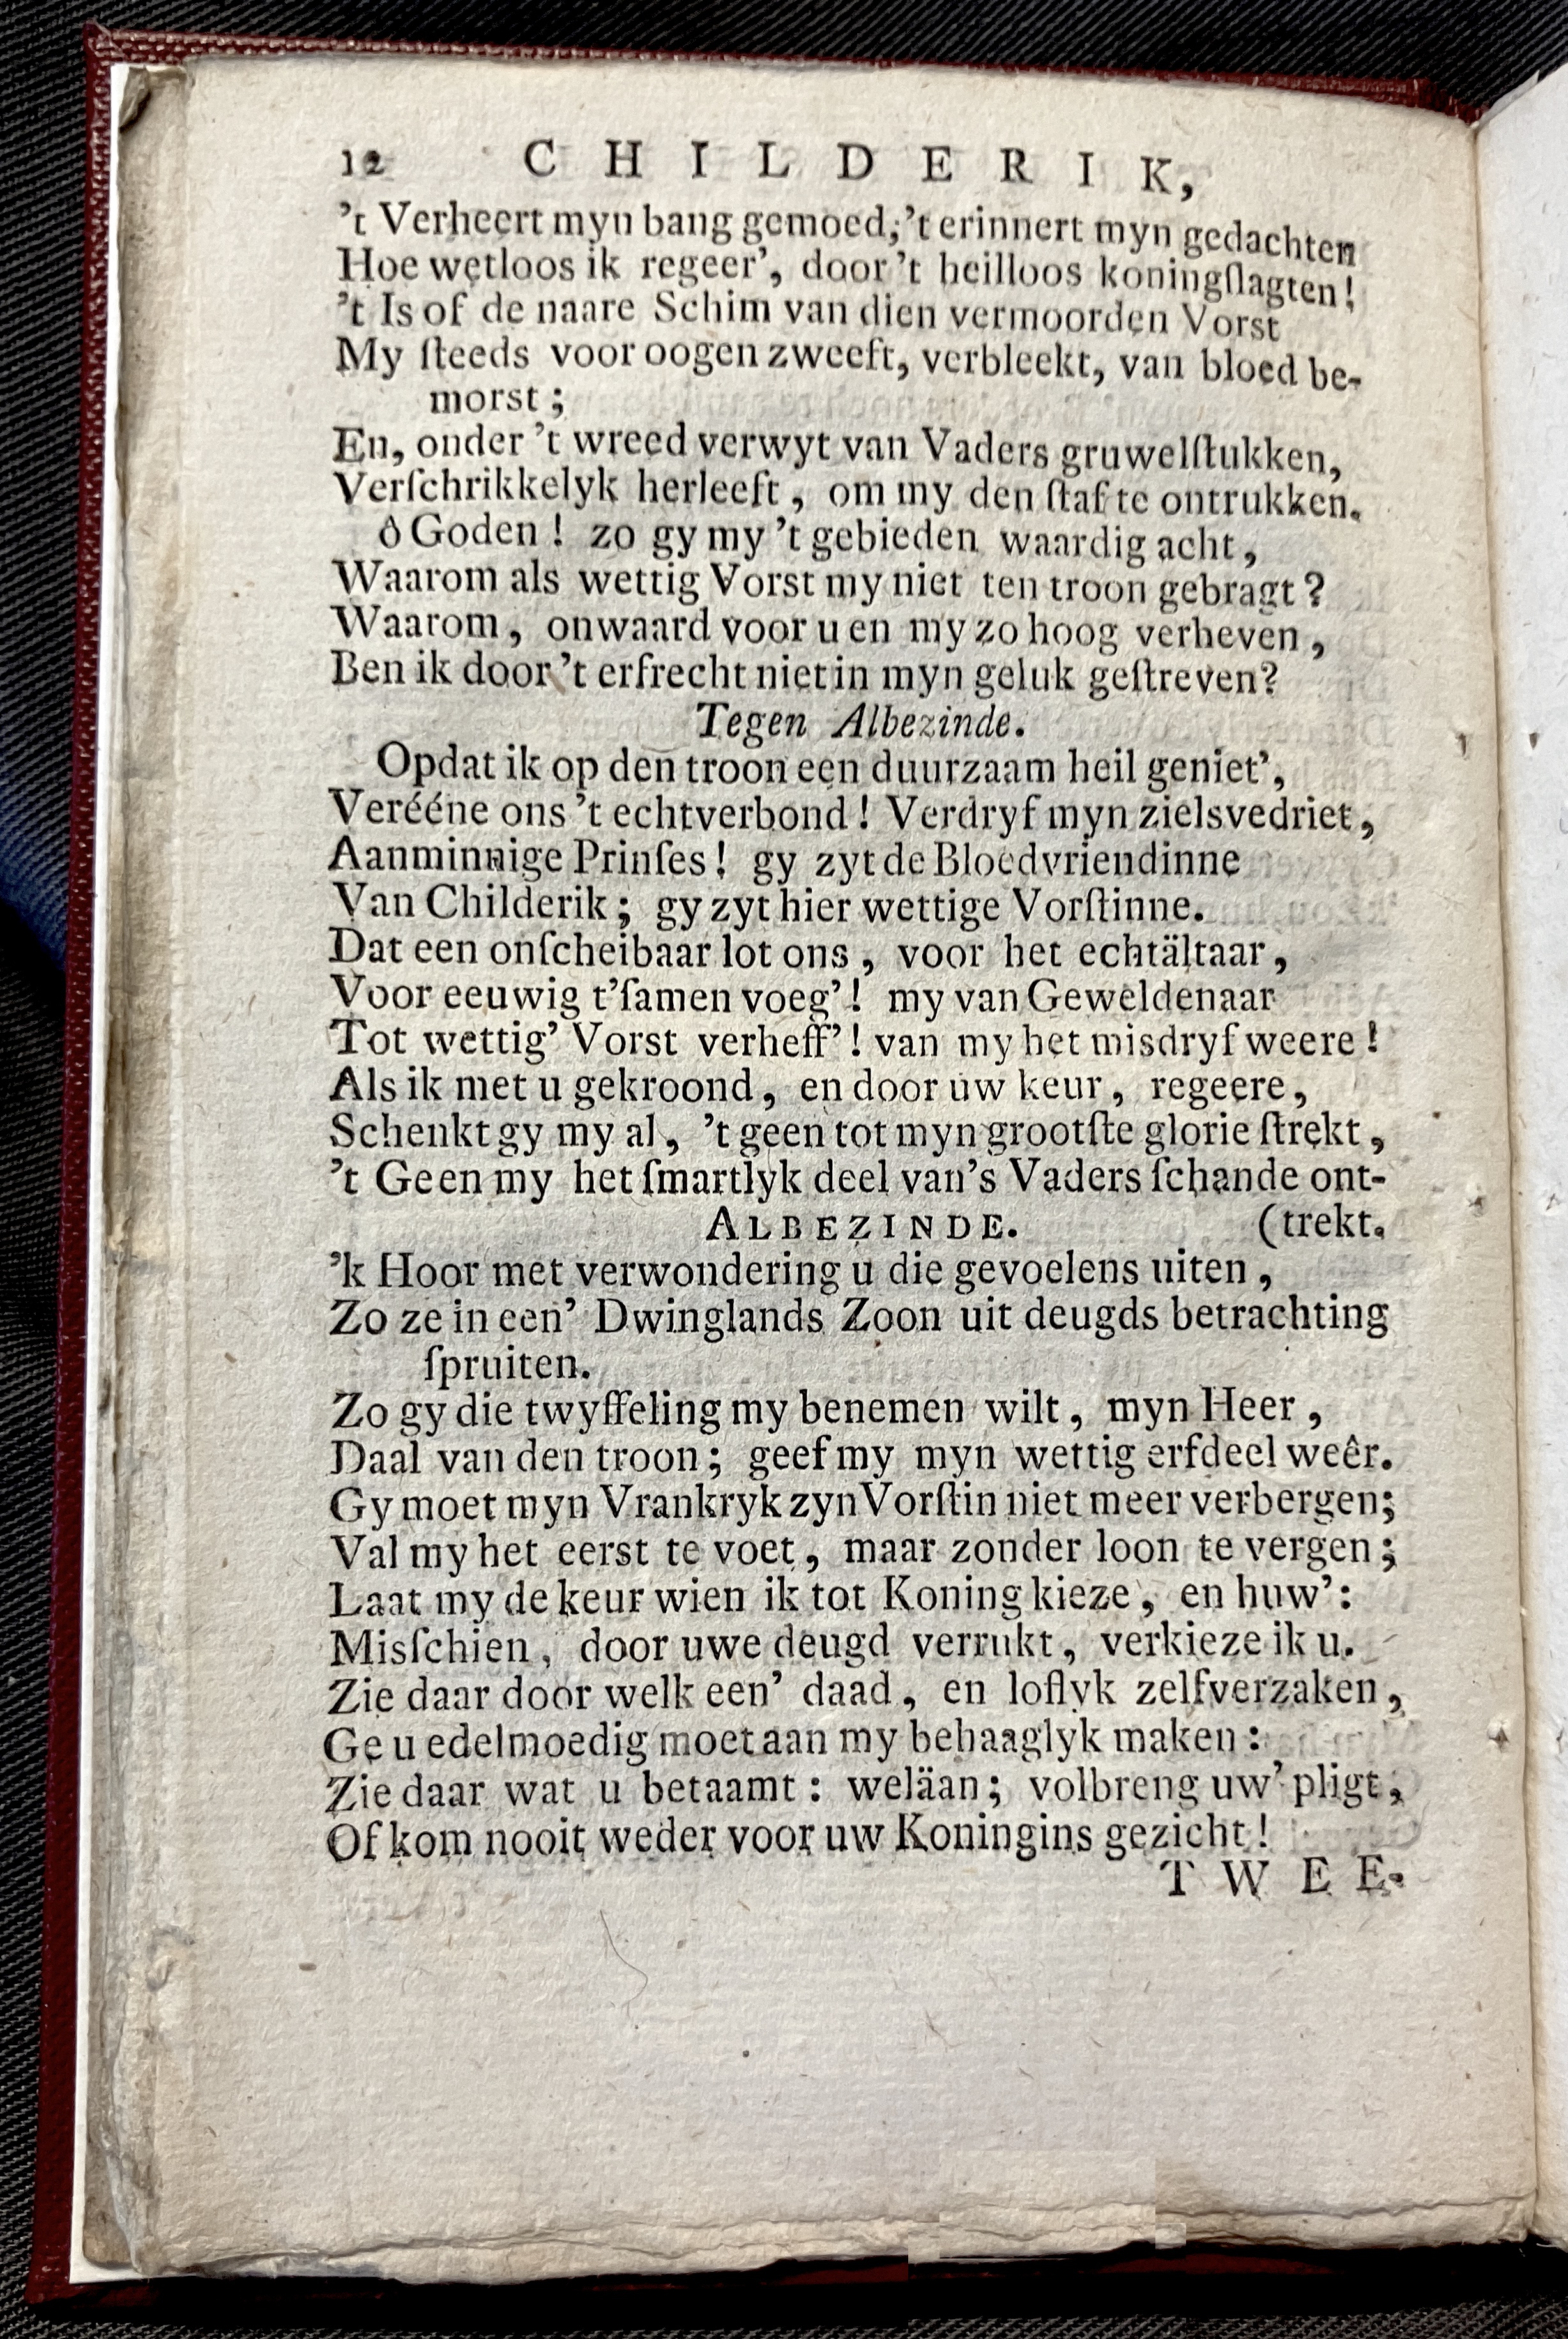 12 CHILDERIK,
’t Verheert myn bang gemoed; ’t erinnert myn gedachten
Hoe wetloos ik regeer’, door ’t heilloos koningſlagten!
’t Is of de naare Schim van dien vermoorden Vorst
My ſteeds voor oogen zweeft, verbleekt, van bloed be-
morst;
En, onder ’t wreed verwyt van Vaders gruwelſtukken,
Verſchrikkelyk herleeft, om my den ſtaf te ontrukken.
ô Goden! zo gy my ’t gebieden waardig acht,
Waarom als wettig Vorst my niet ten troon gebragt?
Waarom, onwaard voor u en my zo hoog verheven,
Ben ik door ’t erfrecht niet in myn geluk geſtreven?
Tegen Albezinde.
Opdat ik op den troon een duurzaam heil geniet’,
Verééne ons ’t echtverbond! Verdryf myn zielsvedriet,
Aanminnige Prinſes! gy zyt de Bloedvriendinne
Van Childerik; gy zyt hier wettige Vorſtinne.
Dat een onſcheibaar lot ons, voor het echtältaar,
Voor eeuwig t’ſamen voeg’! my van Geweldenaar
Tot wettig’ Vorst verheff’! van my het misdryf weere!
Als ik met u gekroond, en door uw keur, regeere,
Schenkt gy my al, ’t geen tot myn grootſte glorie ſtrekt,
’t Geen my het ſmartlyk deel van’s Vaders ſchande ont-
ALBEZINDE. (trekt.
’k Hoor met verwondering u die gevoelens uiten,
Zo ze in een’ Dwinglands Zoon uit deugds betrachting
ſpruiten.
Zo gy die twyffeling my benemen wilt, myn Heer,
Daal van den troon; geef my myn wettig erfdeel weêr.
Gy moet myn Vrankryk zyn Vorſtin niet meer verbergen;
Val my het eerst te voet, maar zonder loon te vergen;
Laat my de keur wien ik tot Koning kieze, en huw’:
Misſchien, door uwe deugd verrukt, verkieze ik u.
Zie daar door welk een’ daad, en loflyk zelfverzaken,
Ge u edelmoedig moet aan my behaaglyk maken:
Zie daar wat u betaamt: weläan; volbreng uw’ pligt,
Of kom nooit weder voor uw Koningins gezicht!
TWEE-